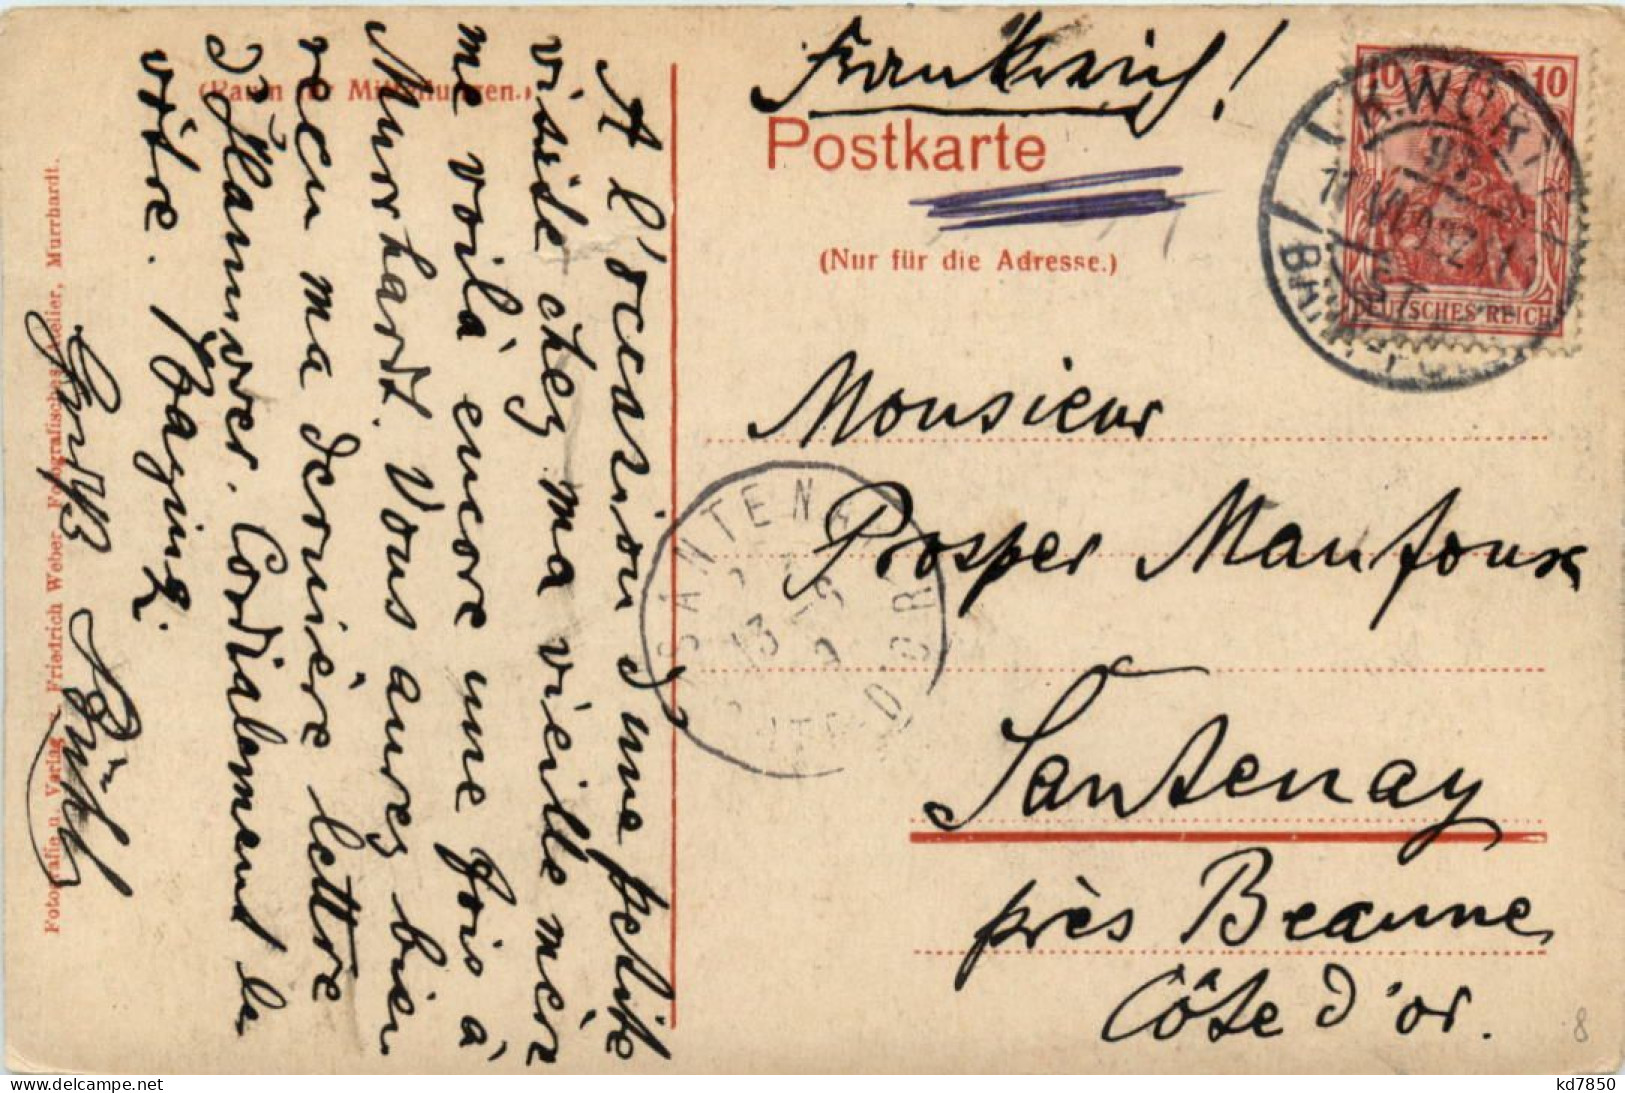 Frankreich!
Postkarte
(Nur für die Adresse.)
10 10
DEUTSCHES REICH
K.WÜRTT.
Monsieur
Prosper Maufoux
Santenay
près Beaune
Côte d'or.
SANTENAY
CÔTE-D'OR
13
(Raum für Mitteilungen.)
A l'occasion d'une petite
visite chez ma vieille mère
me voilà encore une fois à
Murrhardt. Vous aurez bien
recu ma dernière lettre
d'Hannover. Cordialement le
vôtre.
Fotografie u. Verlag v. Friedrich Weber, Fotografisches Atelier, Murrhardt.
8
kd7850